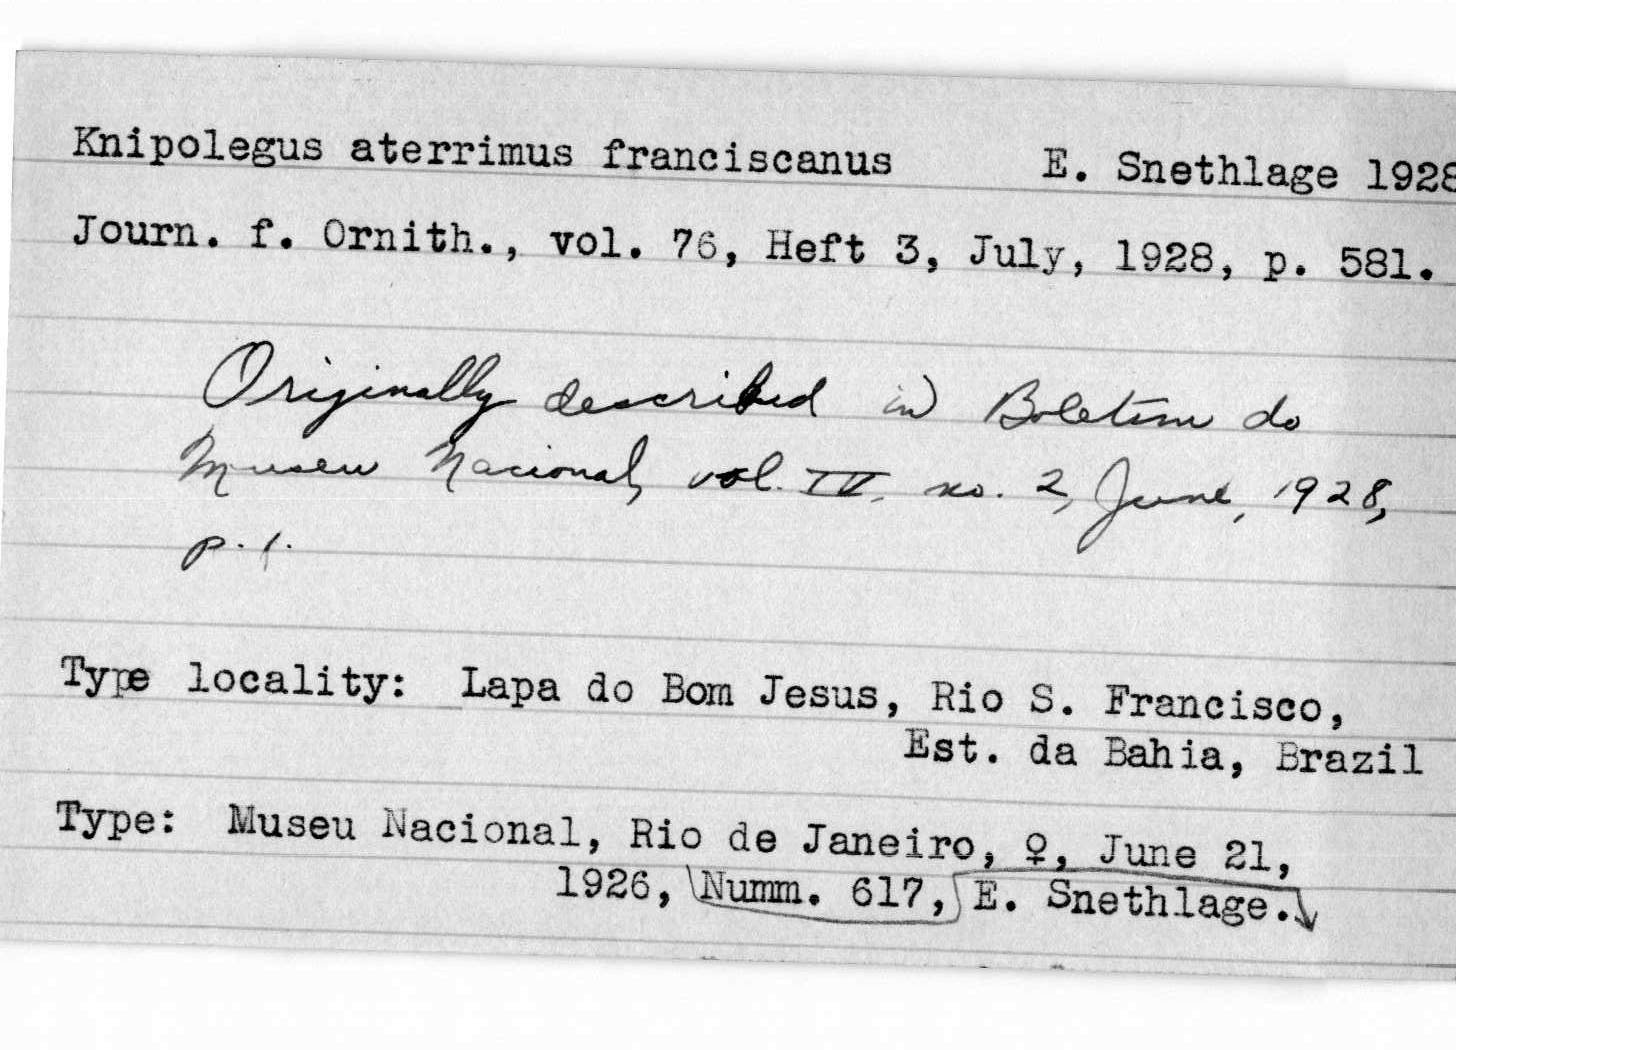 Knipolegus aterrimus franciscanus E. Snethlage 1928
Journ. f. Ornith., vol. 76, Heft 3, July, 1928, p. 581.
Originally described in Boletim do
Museu Nacional, vol. IV, no. 2, June, 1928,
p. 1.
Type locality: Lapa do Bom Jesus, Rio S. Francisco,
Est. da Bahia, Brazil
Type: Museu Nacional, Rio de Janeiro, ♀, June 21,
1926, Numm. 617, E. Snethlage.